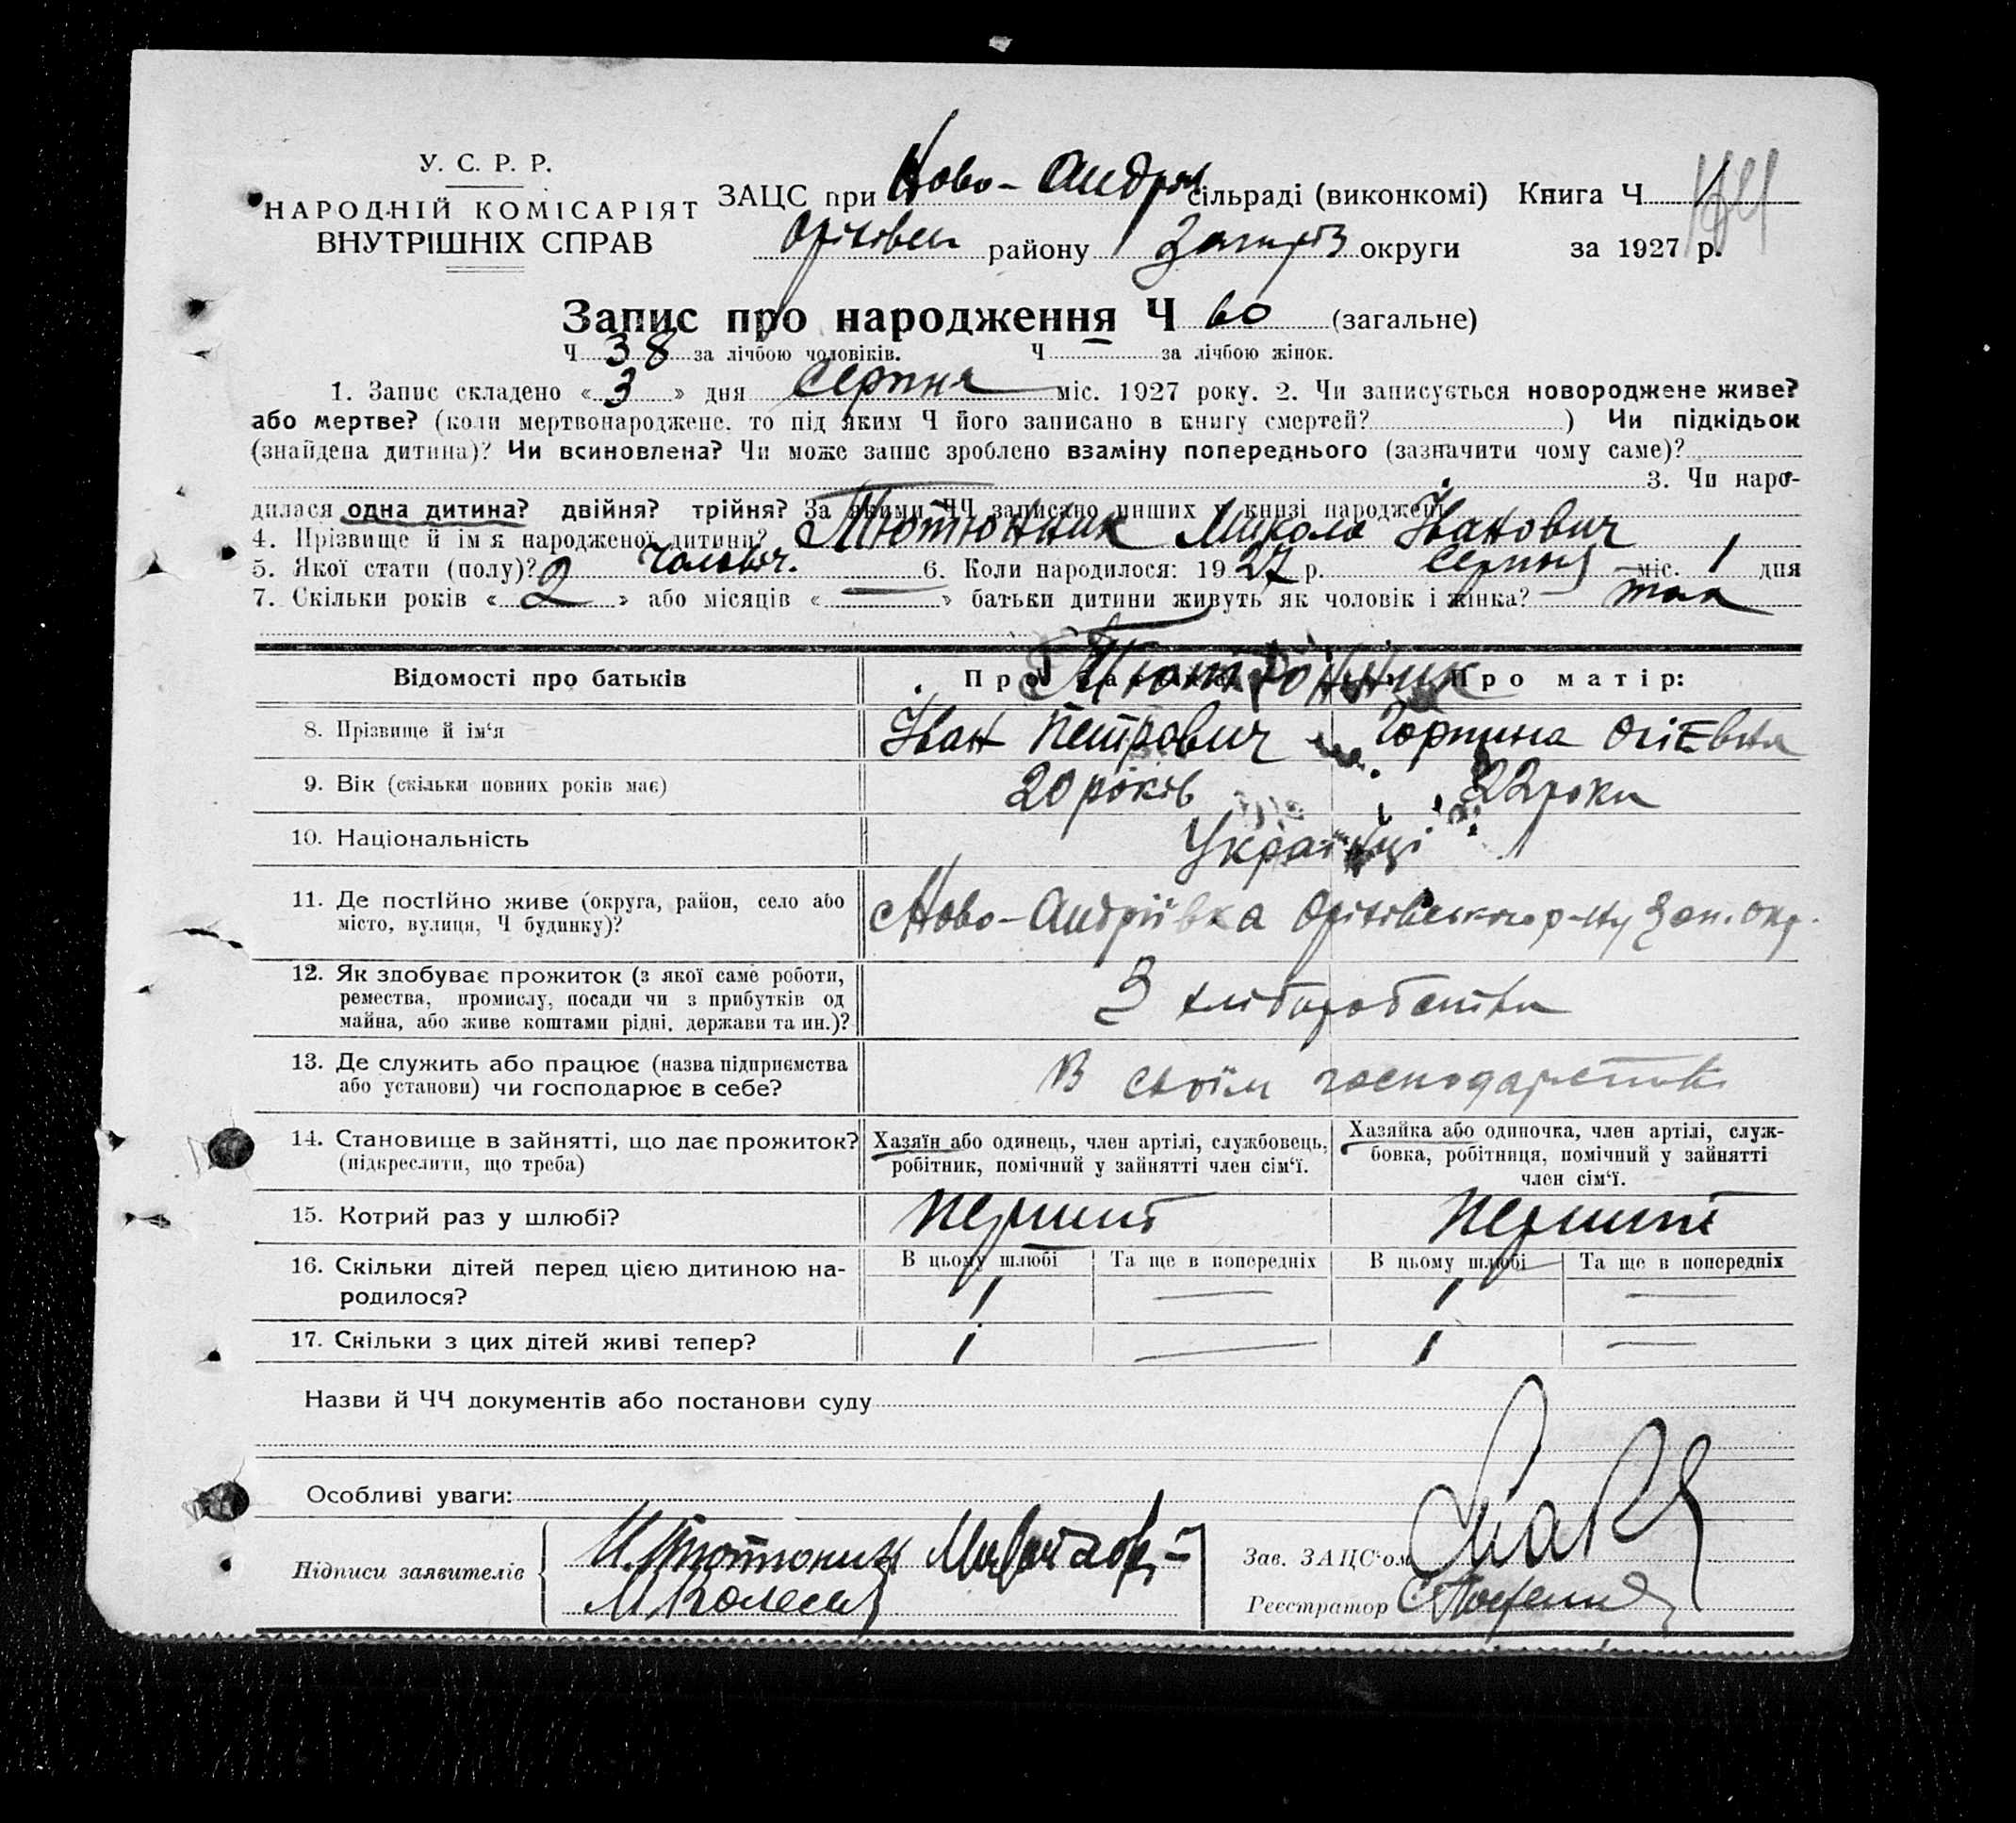 У. С. Р. Р.
НАРОДНІЙ КОМІСАРІЯТ
ВНУТРІШНІХ СПРАВ
ЗАЦС при Ново-Андр сільраді (виконкомі) Книга Ч
району Запоріз округи за 1927 р.
Запис про народження Ч 60 (загальне)
Ч 38 за лічбою чоловіків. Ч за лічбою жінок.
1. Запис складено « 3 » дня Серпня міс. 1927 року. 2. Чи записується новороджене живе?
або мертве? (коли мертвонароджене. то під яким Ч його записано в книгу смертей? ) Чи підкідьок
(знайдена дитина)? Чи всиновлена? Чи може запис зроблено взаміну попереднього (зазначити чому саме)?
3. Чи наро-
дилася одна дитина? двійня? трійня? За якими ЧЧ записано инших у книзі народжень
4. Прізвище й імя народженої дитини? Тютюнник Микола Іванович
5. Якої стати (полу)? Чоловіч. 6. Коли народилося: 1927 р. Серпня міс. 1 дня
7. Скільки років « 2 » або місяців « — » батьки дитини живуть як чоловік і жінка? так
Відомості про батьків Про Тютюнник Про матір:
8. Прізвище й ім'я Іван Петрович Горпина
9. Вік (скільки повних років має) 20 років 22 роки
10. Національність Українці
11. Де постійно живе (округа, район, село або
місто, вулиця, Ч будинку)? Ново-Андріївка Оріхівського р-ну Зап. окр.
12. Як здобуває прожиток (з якої саме роботи,
ремества, промислу, посади чи з прибутків од
майна, або живе коштами рідні, держави та ин.)? З хліборобства
13. Де служить або працює (назва підприємства
або установи) чи господарює в себе? В своїм господарстві
14. Становище в зайнятті, що дає прожиток?
(підкреслити, що треба)
Хазяїн або одинець, член артілі, службовець,
робітник, помічний у зайнятті член сім'ї.
Хазяйка або одиночка, член артілі, служ-
бовка, робітниця, помічний у зайнятті
член сім'ї.
15. Котрий раз у шлюбі? перший перший
В цьому шлюбі Та ще в попередніх В цьому шлюбі Та ще в попередніх
16. Скільки дітей перед цією дитиною на-
родилося? 1 — 1 —
17. Скільки з цих дітей живі тепер? 1 — 1 —
Назви й ЧЧ документів або постанови суду
Особливі уваги:
Підписи заявителів И. Тютюник
Зав. ЗАЦС'ом
Реєстратор